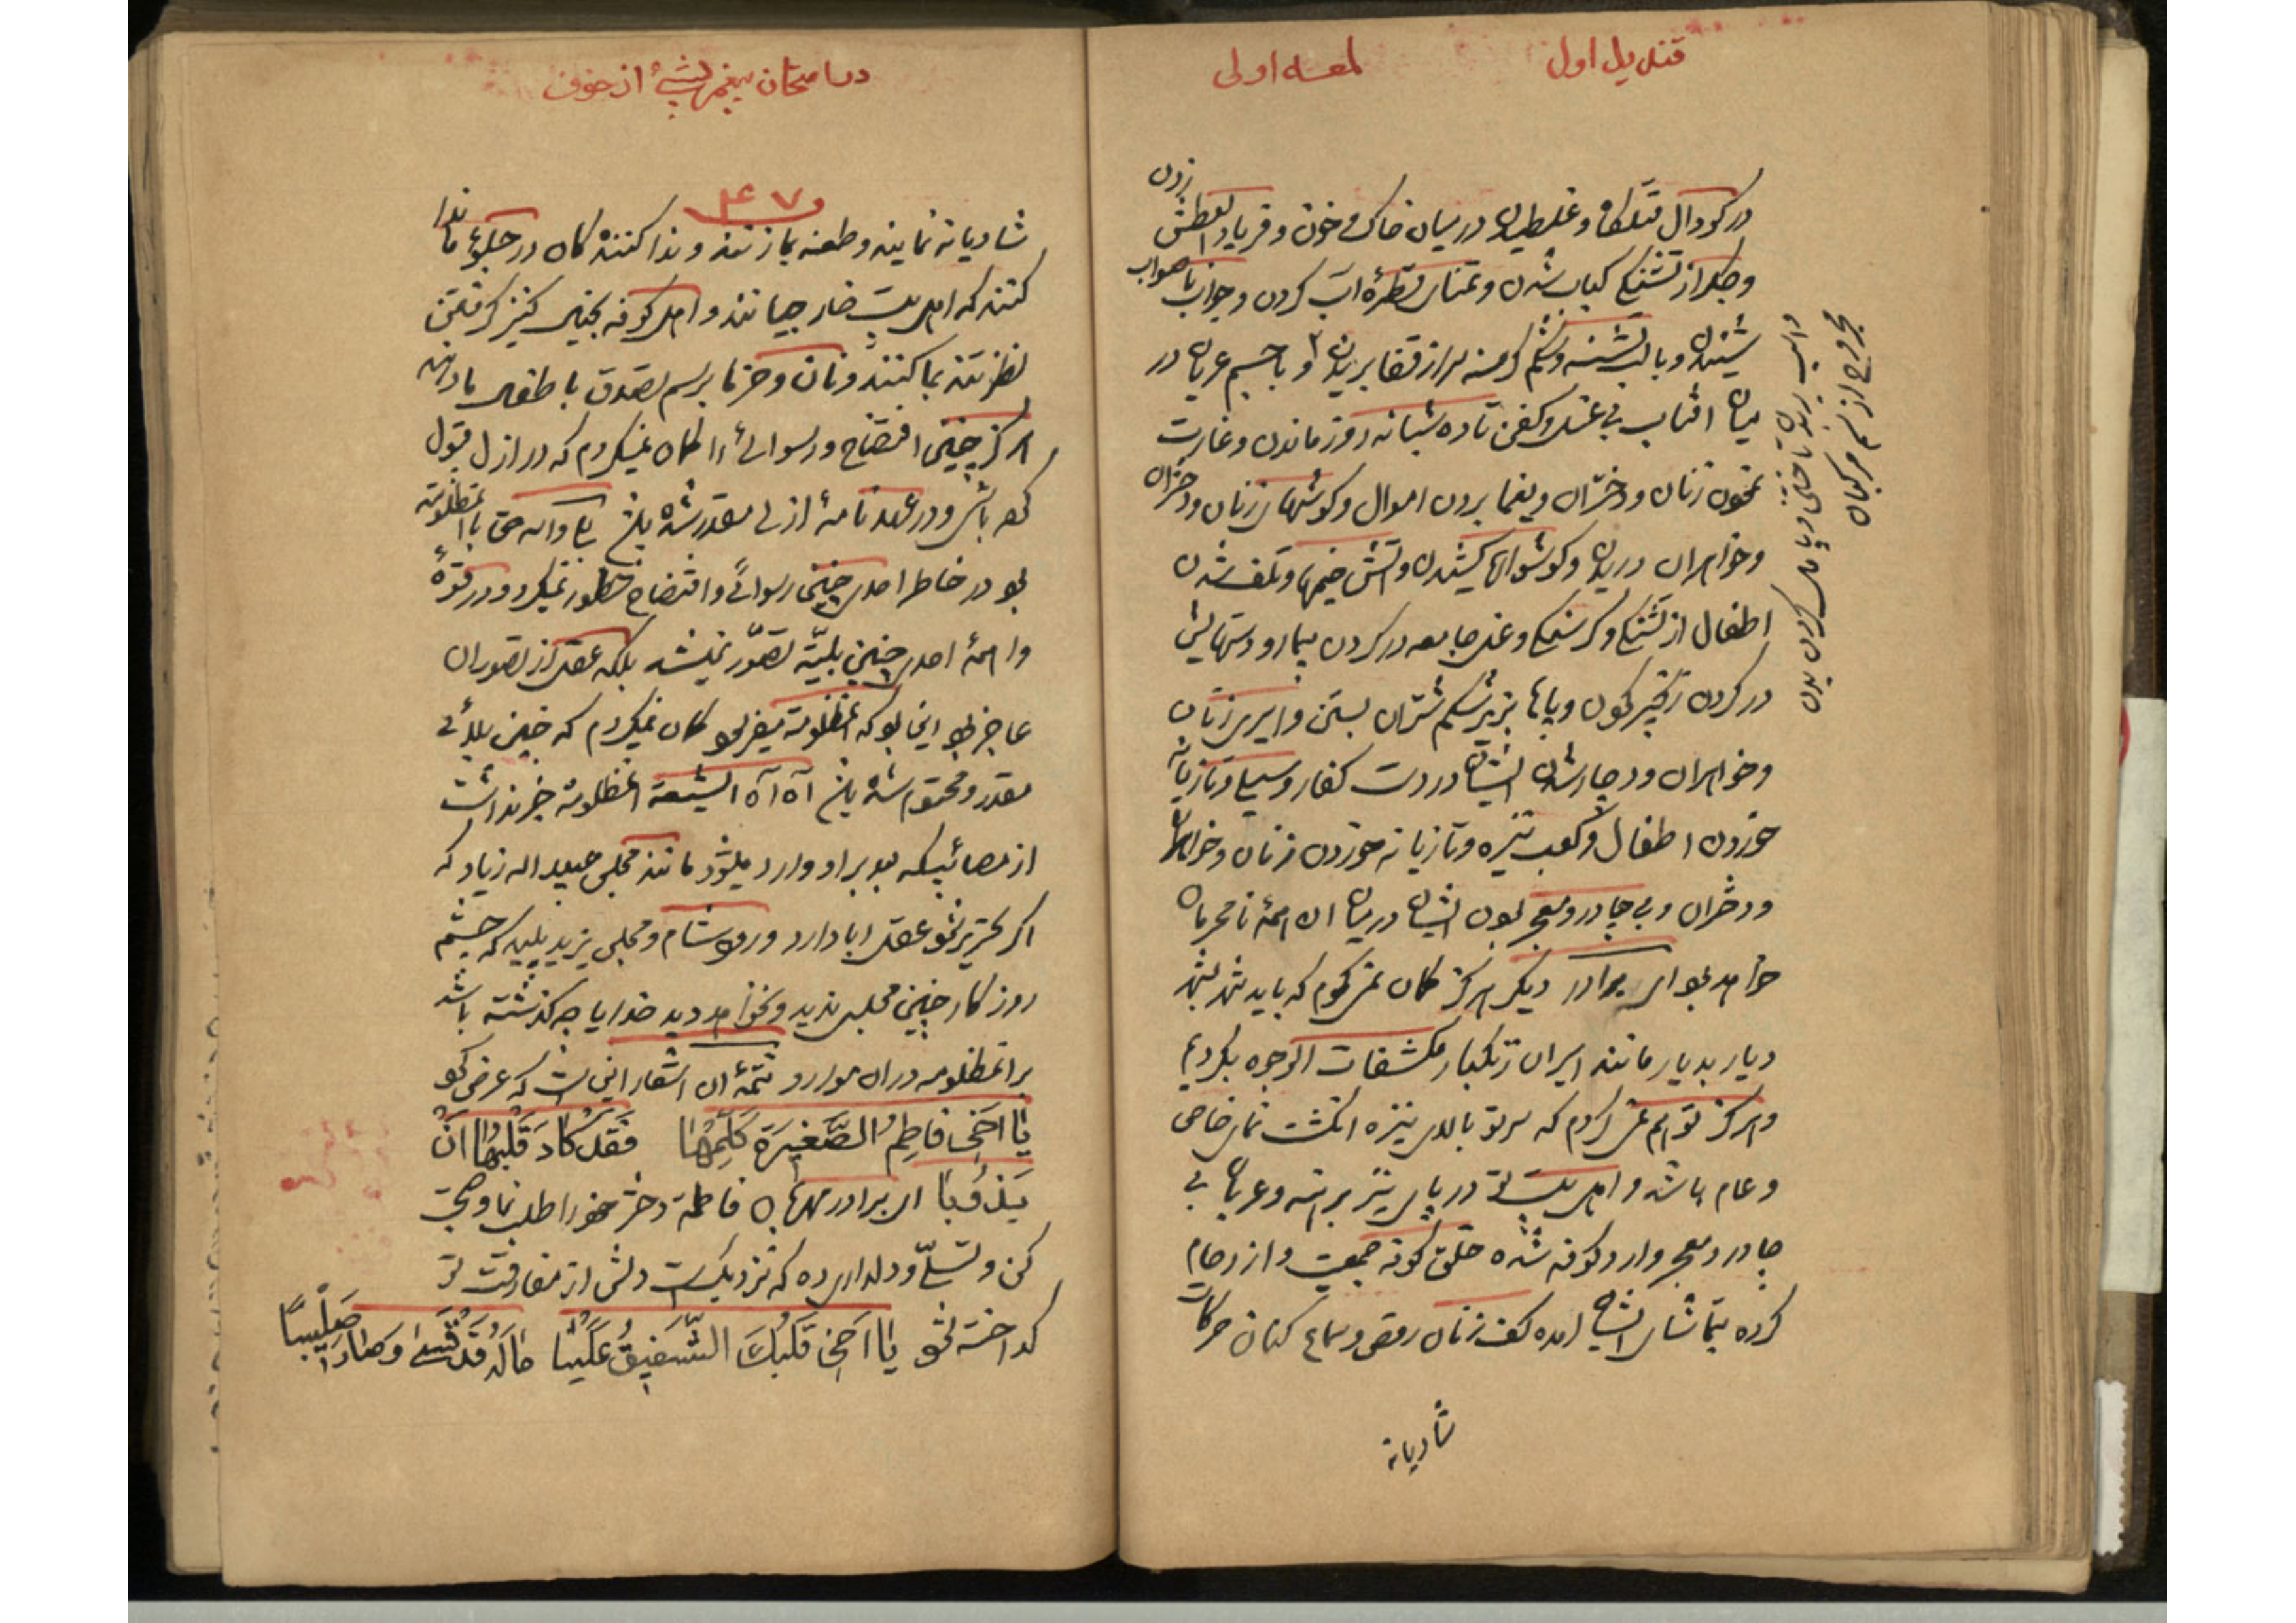 قندیل اول
لمعه اولی
در کودال قتلکاه و غلطیدن در میان خاک و خون و فریاد العطش زدن
و جکر از تشنکی کباب شدن و تمنای قطرهٔ آب کردن و جواب ناصواب
شنیدن و با لب تشنه و شکم کرسنه سر از قفا بریدن و با جسم عریان در
میان افتاب بی غسل و کفن تا ده شبانه روز ماندن و غارت
نمودن زنان و دختران و یغما بردن اموال و کوشهای زنان و دختران
و خواهران دریدن و کوشوارها کشیدن و آتش خیمها و تلف شدن
اطفال از تشنکی و کرسنکی و غل جامعه در کردن بیمار و دستهایش
در کردن زنجیر نمودن و پاها بزیر شکم شتران بستن و اسیری زنان
و خواهران و دچار شدن ایشان در دست کفار و سیلی و تازیانه
خوردن اطفال و کعب نیزه و تازیانه خوردن زنان و خواهران
و دختران و بی چادر و معجر بودن ایشان در میان ان همه نامحرمان
خواهد بود ای برادر دیکر هرکز کمان نمیکردم که باید شهر بشهر
دیار بدیار مانند اسیران زنکبار مکشفات الوجوه بکردیم
و هرکز توهم نمیکردم که سر تو بالای نیزه انکشت نمای خاص
و عام باشد و اهل بیت تو در پای نیزه برهنه و عریان بی
چادر و معجر وارد کوفه شده خلق کوفه جمعیت و ازدحام
کرده بتماشای ایشان امده کف زنان رقص و سماع کنان حرکات
شادیانه
و اسب بر بدن تاختن و پامال کردن بدن
مجروح از سم مرکبان
در امتحان پیغمبر بشیئ از خوف
۴۷
شادیانه نمایند و طعنه بما زنند و ندا کنندکان در جلوی ما ندا
کنند که اهل بیت خارجیانند و اهل کوفه بخیال کنیز کرفتن
نظر تند بما کنند و نان و خرما برسم تصدق با طفال ما دهند
هرکز چنین افتضاح و رسوائی را کمان نمیکردم که در ازل قبول
کرده باشی و در عهدنامهٔ ازلی مقدر شده باشد بلی والله حق با انمظلومه
بود در خاطر احدی چنین رسوائی و افتضاح خطور نمیکرد و در قوهٔ
واهمهٔ احدی چنین بلیّه تصوّر نمیشد بلکه عقل از تصور ان
عاجز بود این بود که انمظلومه میفرمود کمان نمیکردم که چنین بلائی
مقدر و محتوم شده باشد آه آه ایشیعه انمظلومه خبر نداشت
از مصائبیکه بعد بر او وارد میشود مانند مجلس عبیدالله زیاد که
اکر تحریر نمود عقل ابا دارد و ورود شام و مجلس یزید پلید که چشم
روزکار چنین مجلس ندید و نخواهد دید خدایا چه کذشته باشد
بر انمظلومه در ان موارد تتمهٔ ان اشعار این است که عرض کرد
یَا اَخِی فَاطِمُ الصَّغِیرَةَ کَلِّمْهَا فَقَدْ کَادَ قَلْبُهَا اَنْ
یَذُوبَا ای برادر مهربان فاطمه دختر خود را طلب نما و صحبت
کن و تسلّی و دلداری ده که نزدیکست دلش از مفارقت تو
کداخته شود یَا اَخِی قَلْبُكَ الشَّفِیقُ عَلَیْنَا مَالَهُ قَدْ قَسَی وَصَارَ صَلِیبًا